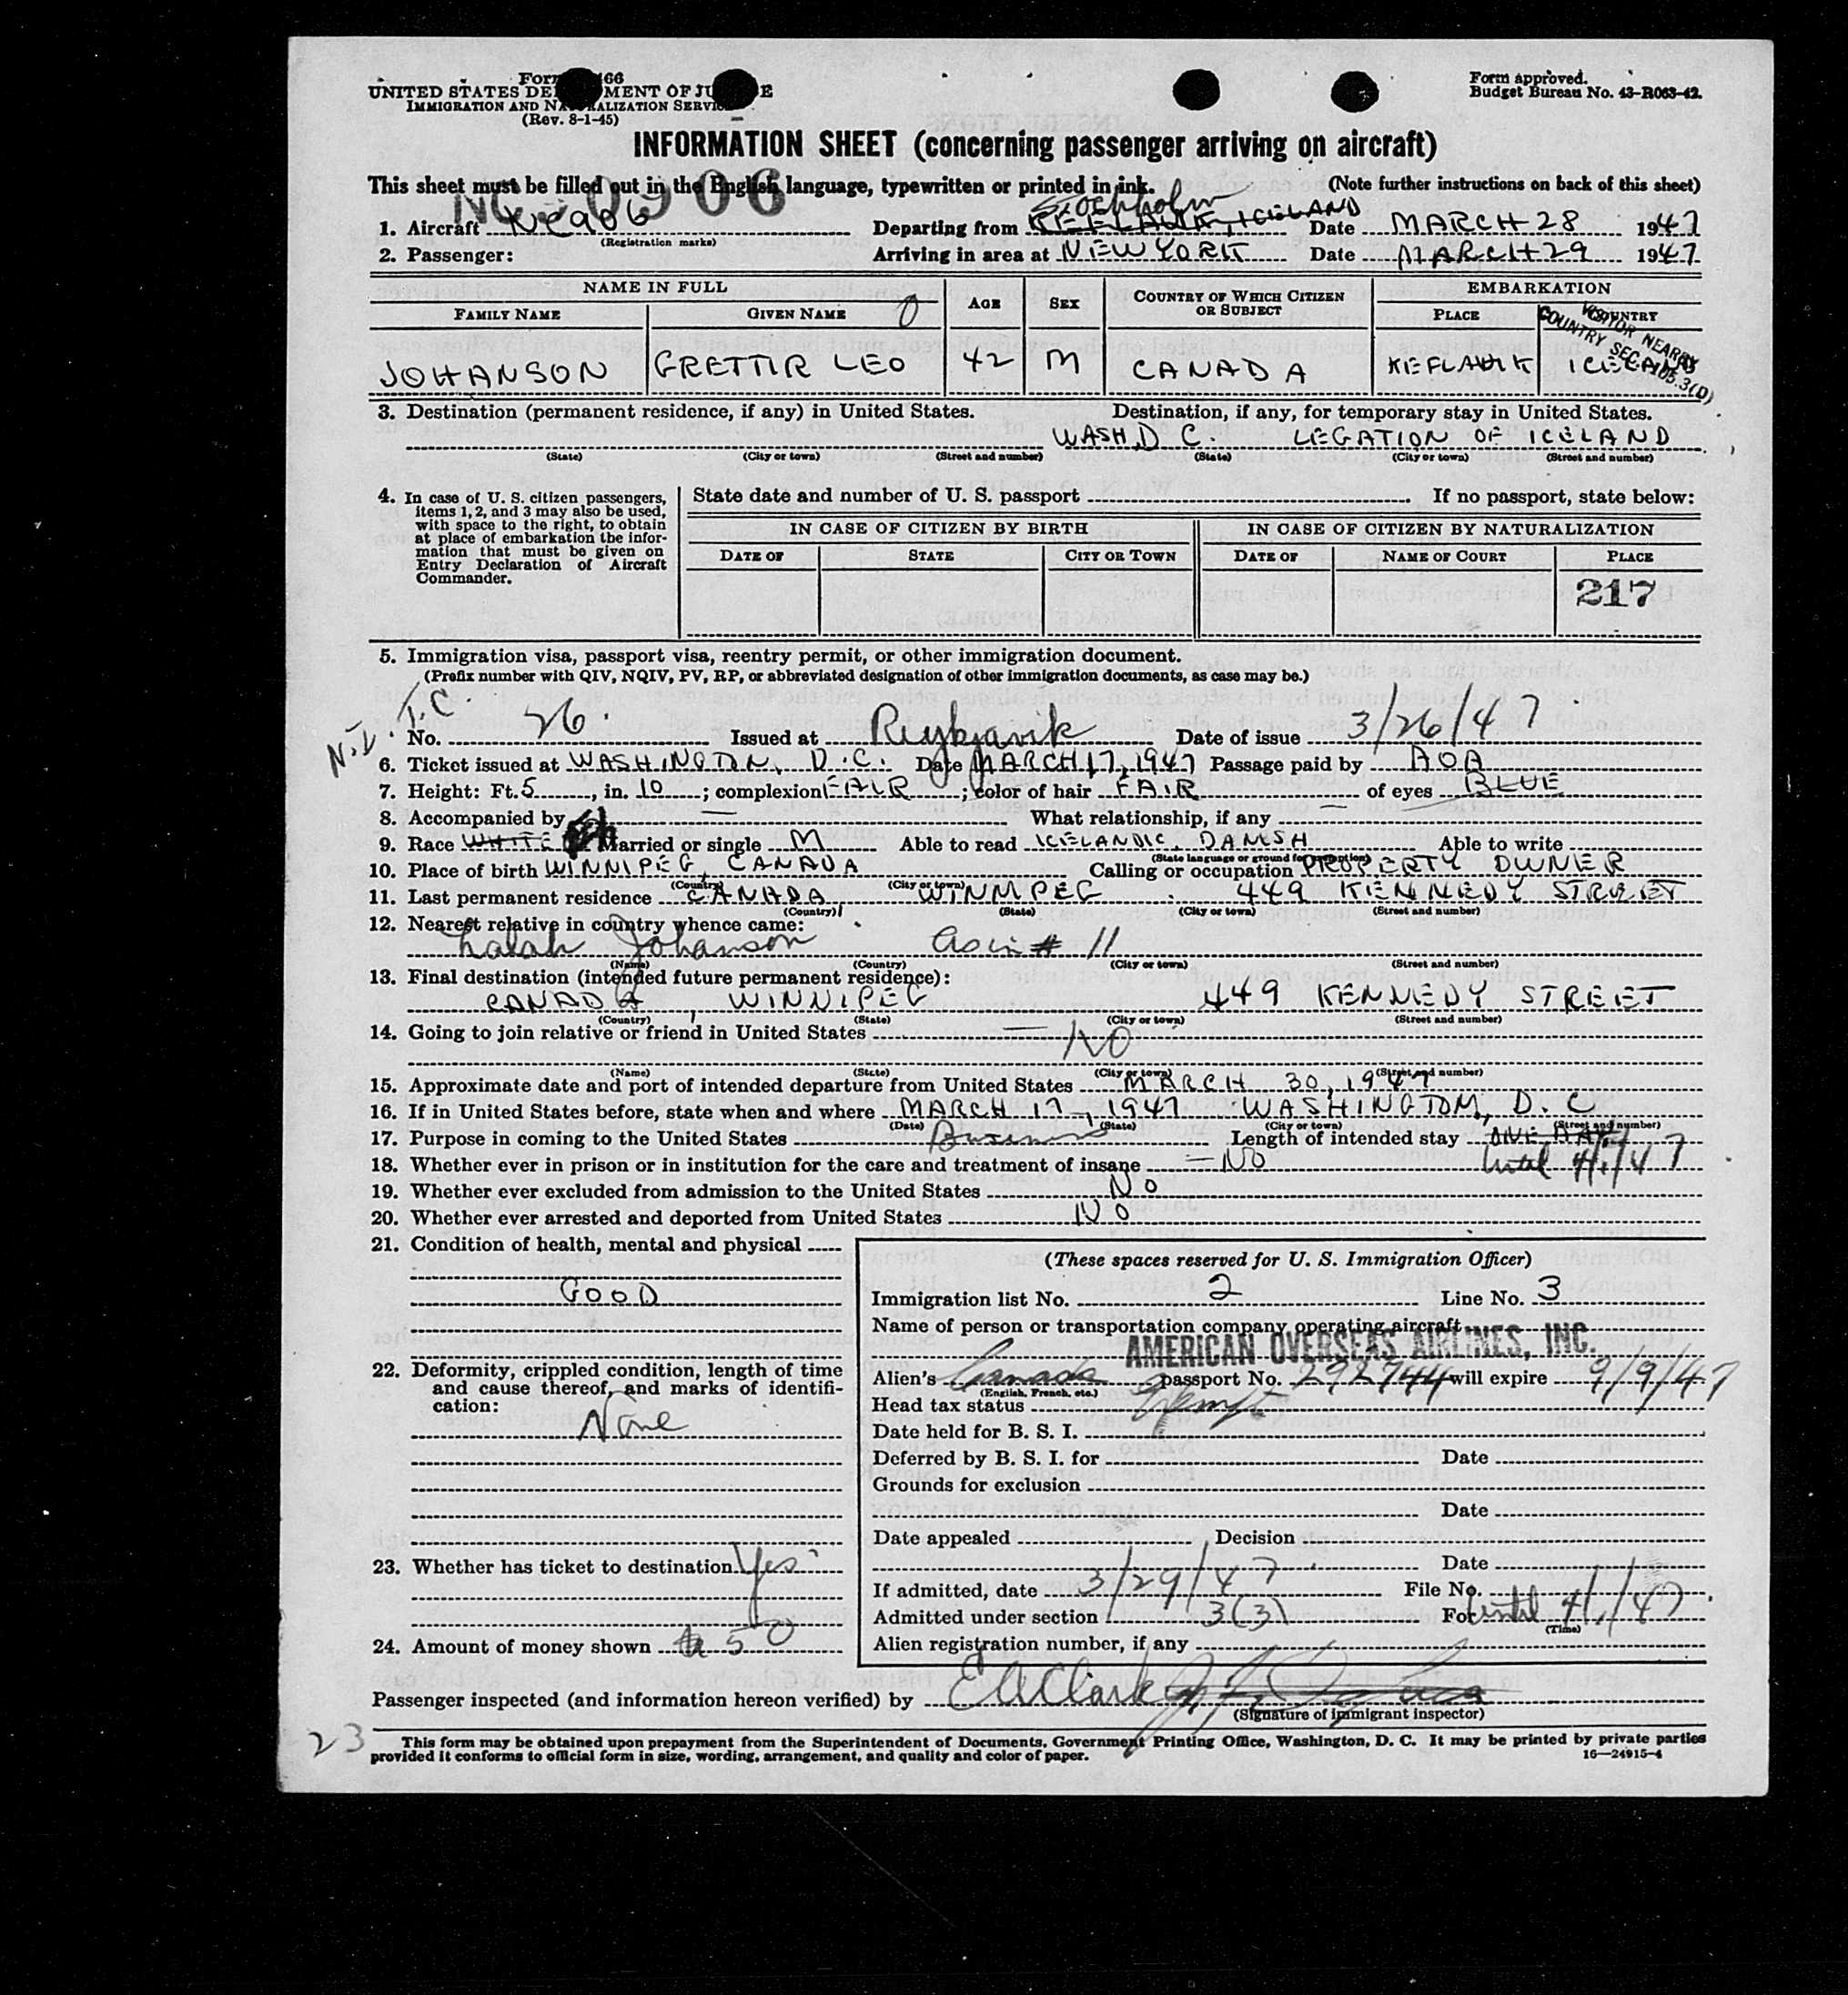 Form 66
UNITED STATES DE MENT OF JU E
IMMIGRATION AND NA ALIZATION SERVI
(Rev. 8-1-45)
Form approved.
Budget Bureau No. 43-R063-42.
INFORMATION SHEET (concerning passenger arriving on aircraft)
This sheet must be filled out in the English language, typewritten or printed in ink.
(Note further instructions on back of this sheet)
Stockholm
1. Aircraft NC906 Departing from KEFLAVIK, ICELAND Date MARCH 28 1947
(Registration marks)
2. Passenger: Arriving in area at NEW YORK Date MARCH 29 1947
NAME IN FULL AGE SEX COUNTRY OF WHICH CITIZEN OR SUBJECT EMBARKATION
FAMILY NAME GIVEN NAME PLACE COUNTRY
VISITOR NEARBY
COUNTRY SEC. 105.3(D)
JOHANSON GRETTIR LEO 42 M CANADA KEFLAVIK ICELAND
3. Destination (permanent residence, if any) in United States. Destination, if any, for temporary stay in United States.
WASH D C. LEGATION OF ICELAND
(State) (City or town) (Street and number) (State) (City or town) (Street and number)
4. In case of U. S. citizen passengers, items 1, 2, and 3 may also be used, with space to the right, to obtain at place of embarkation the information that must be given on Entry Declaration of Aircraft Commander.
State date and number of U. S. passport If no passport, state below:
IN CASE OF CITIZEN BY BIRTH IN CASE OF CITIZEN BY NATURALIZATION
DATE OF STATE CITY OR TOWN DATE OF NAME OF COURT PLACE
217
5. Immigration visa, passport visa, reentry permit, or other immigration document.
(Prefix number with QIV, NQIV, PV, RP, or abbreviated designation of other immigration documents, as case may be.)
T.C.
N.I. No. 26. Issued at Reykjavik Date of issue 3/26/47
6. Ticket issued at WASHINGTON, D.C. Date MARCH 17, 1947 Passage paid by AOA
7. Height: Ft. 5, in. 10; complexion FAIR; color of hair FAIR of eyes BLUE
8. Accompanied by — What relationship, if any —
9. Race WHITE Married or single M Able to read ICELANDIC. DANISH Able to write
(State language or ground for exemption)
10. Place of birth WINNIPEG, CANADA Calling or occupation PROPERTY OWNER
(Country) (City or town)
11. Last permanent residence CANADA WINNIPEG 449 KENNEDY STREET
(Country) (State) (City or town) (Street and number)
12. Nearest relative in country whence came:
Lalah Johanson as in # 11
(Name) (Country) (City or town) (Street and number)
13. Final destination (intended future permanent residence):
CANADA, WINNIPEG 449 KENNEDY STREET
(Country) (State) (City or town) (Street and number)
14. Going to join relative or friend in United States — NO
(Name) (State) (City or town) (Street and number)
15. Approximate date and port of intended departure from United States MARCH 30, 1947
16. If in United States before, state when and where MARCH 17, 1947 WASHINGTON, D. C
(Date) (State) (City or town) (Street and number)
17. Purpose in coming to the United States Business Length of intended stay ONE DAY
until 4/1/47
18. Whether ever in prison or in institution for the care and treatment of insane — No
19. Whether ever excluded from admission to the United States No
20. Whether ever arrested and deported from United States NO
21. Condition of health, mental and physical
GOOD
22. Deformity, crippled condition, length of time and cause thereof, and marks of identification:
None
23. Whether has ticket to destination Yes
24. Amount of money shown $ 50
(These spaces reserved for U. S. Immigration Officer)
Immigration list No. 2 Line No. 3
Name of person or transportation company operating aircraft
AMERICAN OVERSEAS AIRLINES, INC.
Alien's Canada passport No. 292744 will expire 9/9/47
(English, French, etc.)
Head tax status Exempt
Date held for B. S. I.
Deferred by B. S. I. for Date
Grounds for exclusion
Date
Date appealed Decision
Date
If admitted, date 3/29/47 File No.
Admitted under section 3(3) For until 4/1/47
(Time)
Alien registration number, if any
Passenger inspected (and information hereon verified) by E A Clark
(Signature of immigrant inspector)
23
This form may be obtained upon prepayment from the Superintendent of Documents, Government Printing Office, Washington, D. C. It may be printed by private parties
provided it conforms to official form in size, wording, arrangement, and quality and color of paper. 16—24915-4